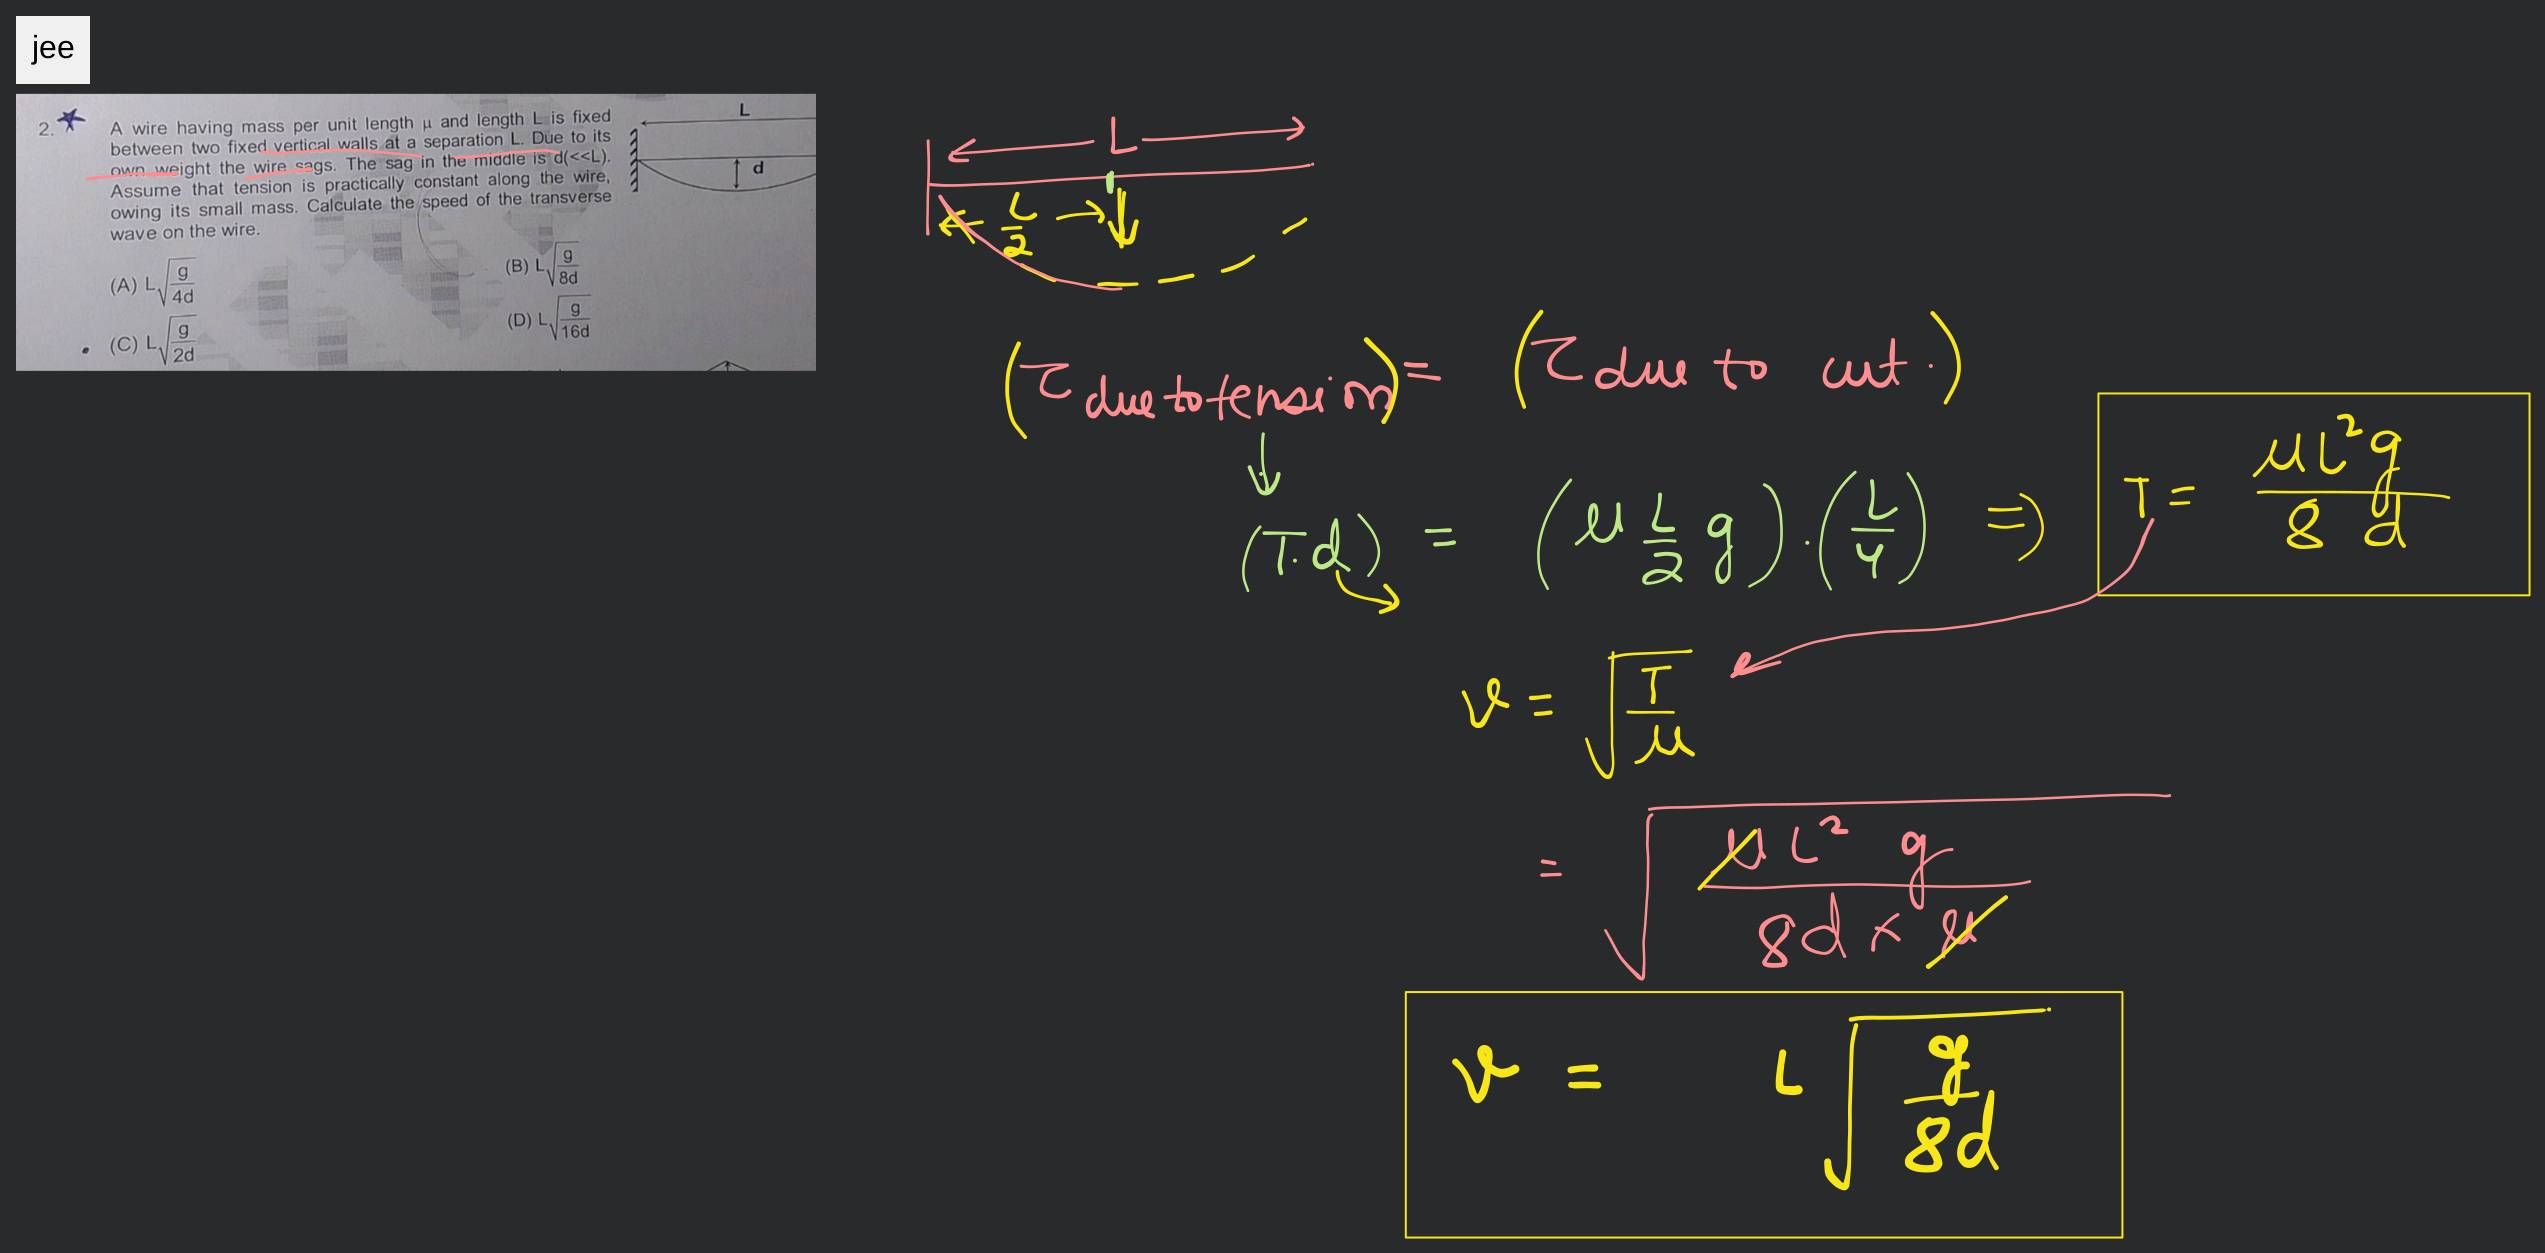 jee
2. A wire having mass per unit length μ and length L is fixed
between two fixed vertical walls at a separation L. Due to its
own weight the wire sags. The sag in the middle is d(<<L).
Assume that tension is practically constant along the wire,
owing its small mass. Calculate the speed of the transverse
wave on the wire.
L
d
(A) L√(g/4d)
(B) L√(g/8d)
(C) L√(g/2d)
(D) L√(g/16d)
L
L/2
(τ due to tension) = (τ due to wt.)
(T.d) = (μ L/2 g).(L/4) ⇒ T = μL²g/8d
v = √(T/μ)
= √(μL²g/8d×μ)
v = L√(g/8d)